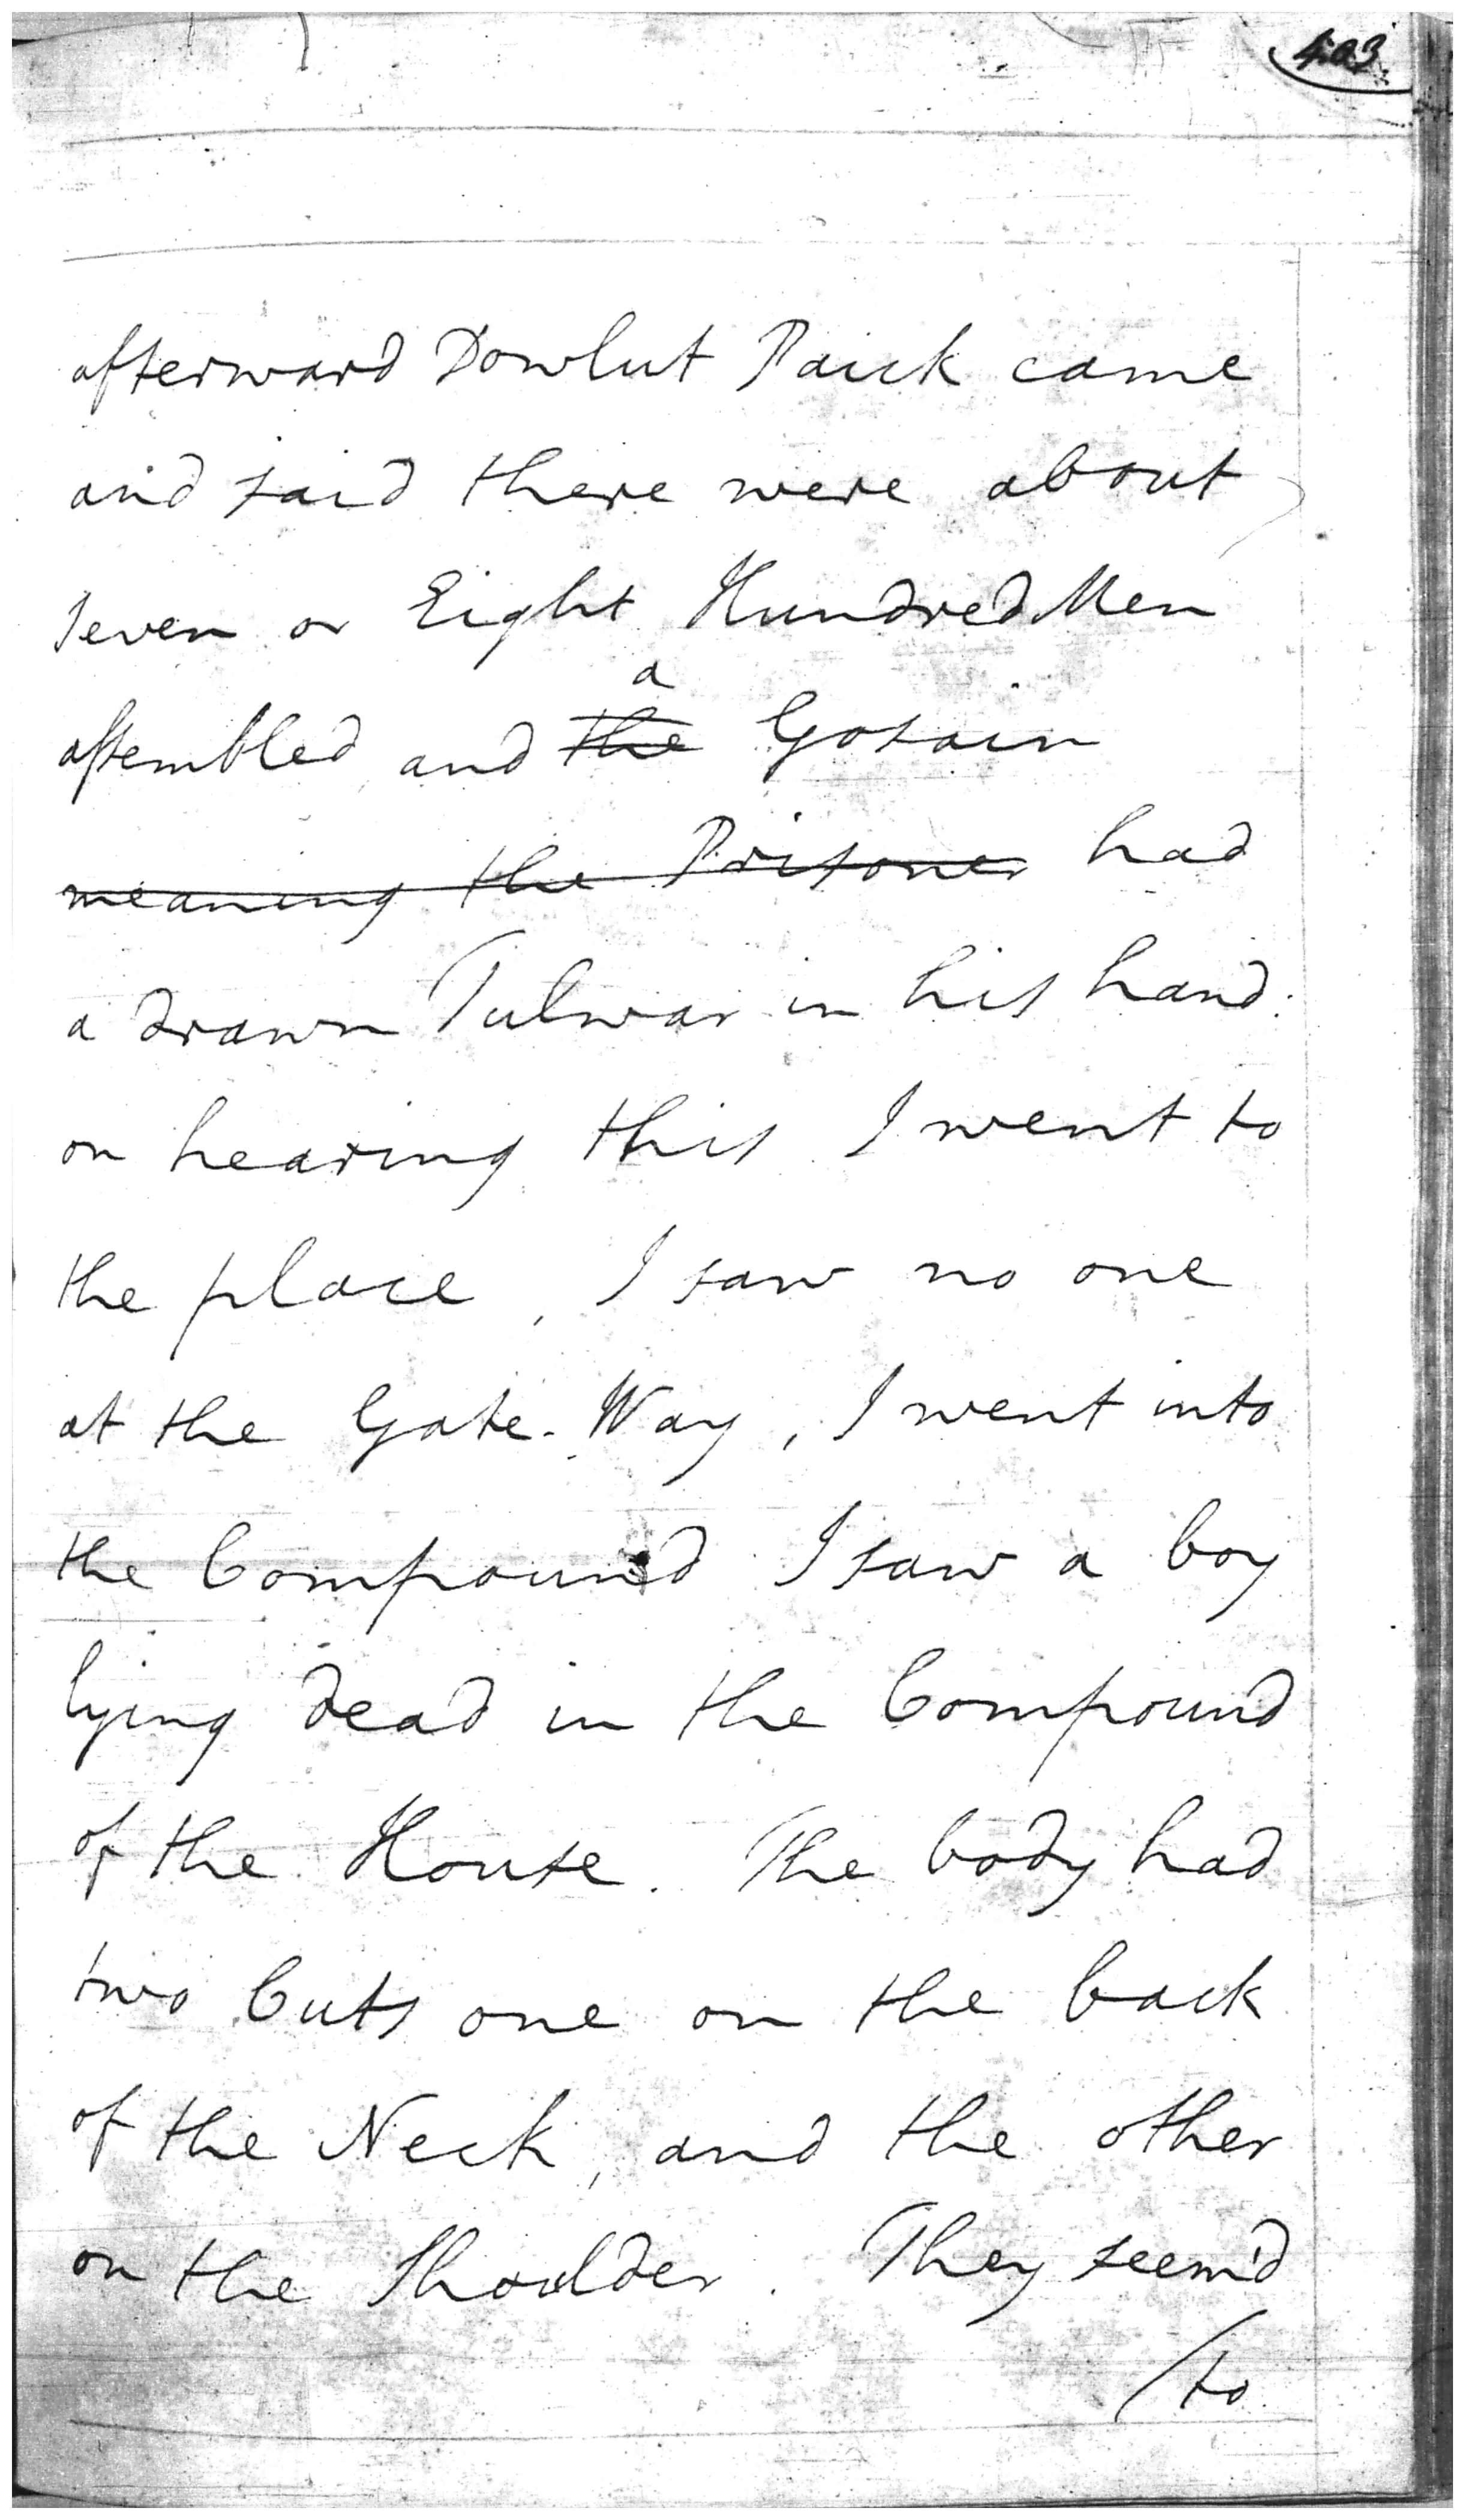 403
afterward Dowlut Paick came
and said there were about
seven or Eight Hundred Men
a
assembled and the Gosain
meaning the Prisoner had
a drawn Tulwar in his hand.
on hearing this I went to
the place, I saw no one
at the Gate-Way, I went into
the Compound I saw a boy
lying dead in the Compound
of the House. The body had
two Cuts one on the back
of the Neck, and the other
on the Shoulder. They seem'd
/to